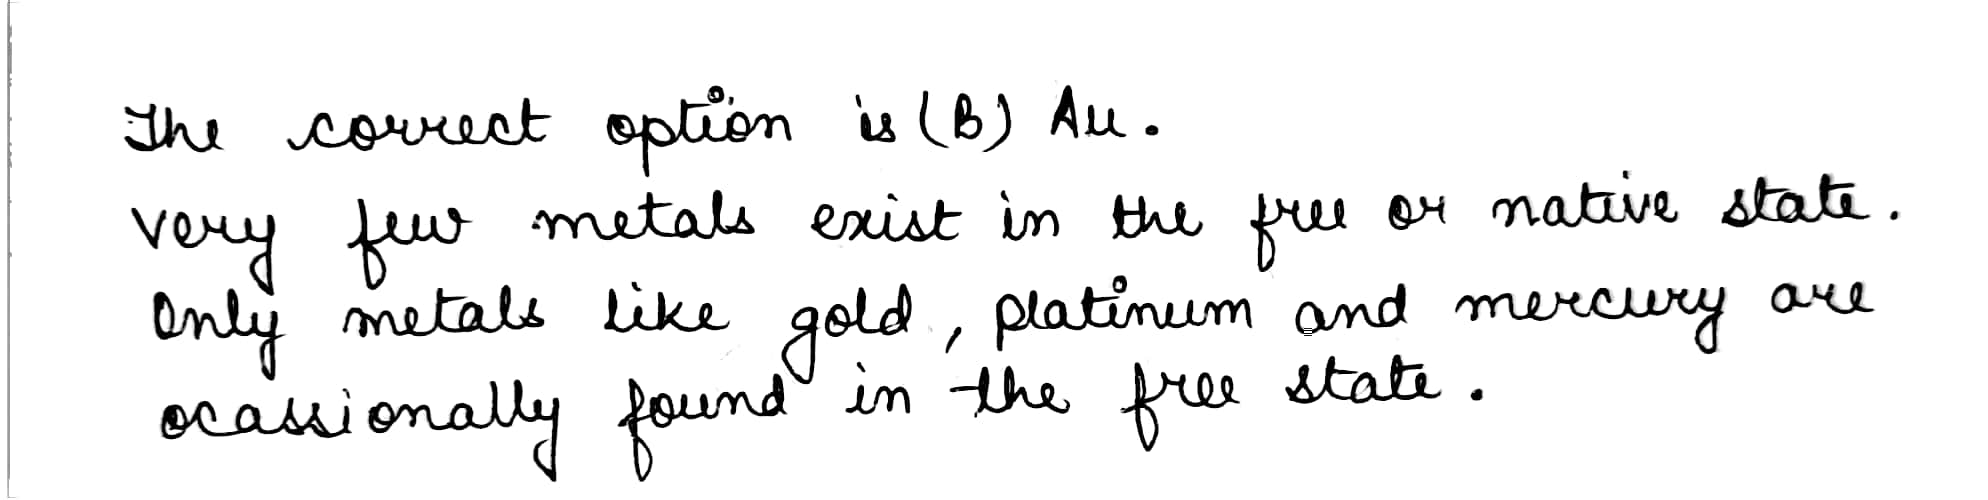 The correct option is (B) Au.
very few metals exist in the free or native state.
Only metals like gold, platinum and mercury are
ocassionally found in the free state.